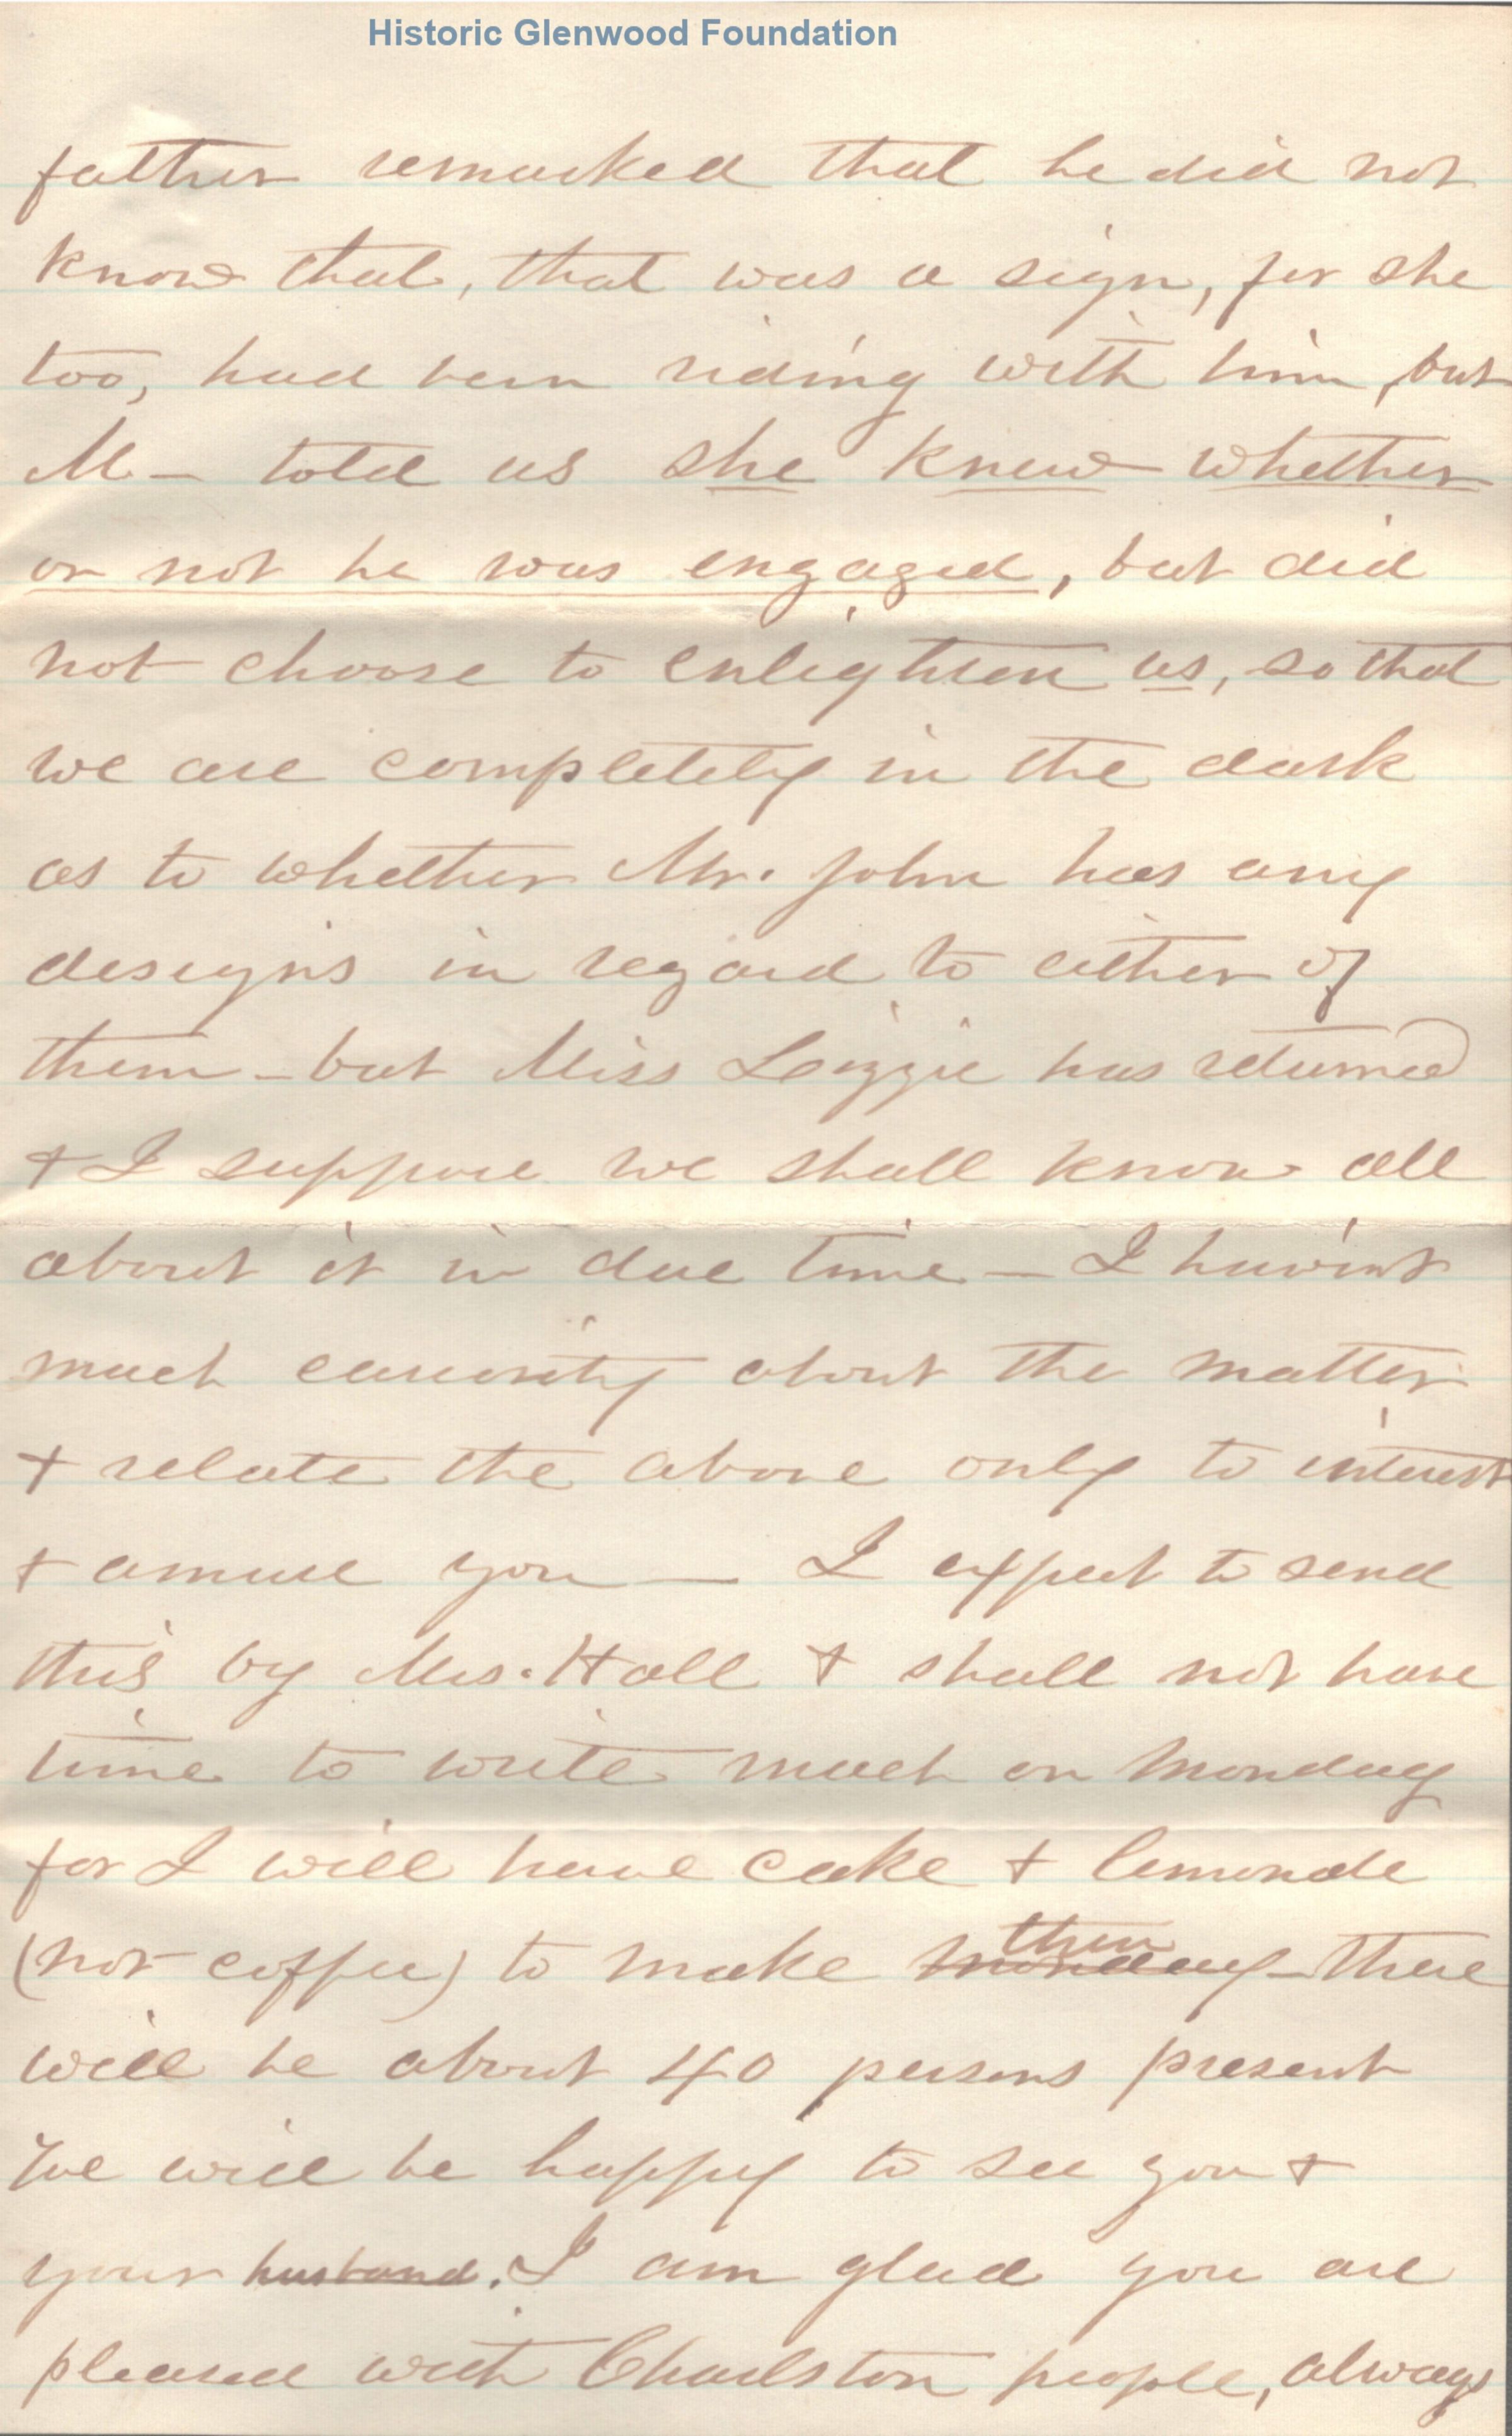 Historic Glenwood Foundation
father remarked that he did not
know that, that was a sign, for she
too, had been riding with him, but
M – told us she knew whether
or not he was engaged, but did
not choose to enlighten us, so that
we are completely in the dark
as to whether Mr. John has any
designs in regard to either of
them – but Miss Lizzie has returned
& I suppose we shall know all
about it in due time – I havint
much curiosity about the matter
& relate the above only to interest
& amuse you – I expect to send
this by Mrs. Hall & shall not have
time to write much on Monday
for I will have cake & lemonade
(not coffee) to make then monday – there
will be about 40 persons present
We will be happy to see you &
your husband. I am glad you are
pleased with Charlston people, always